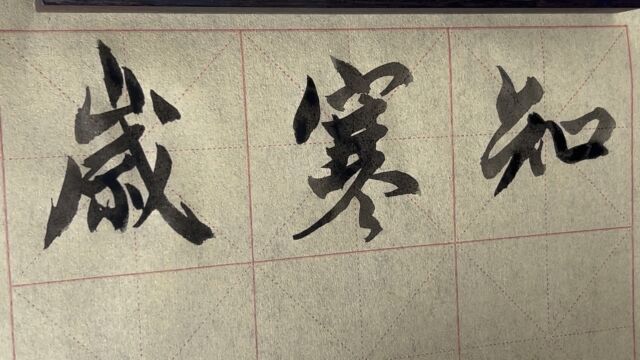 歲寒知